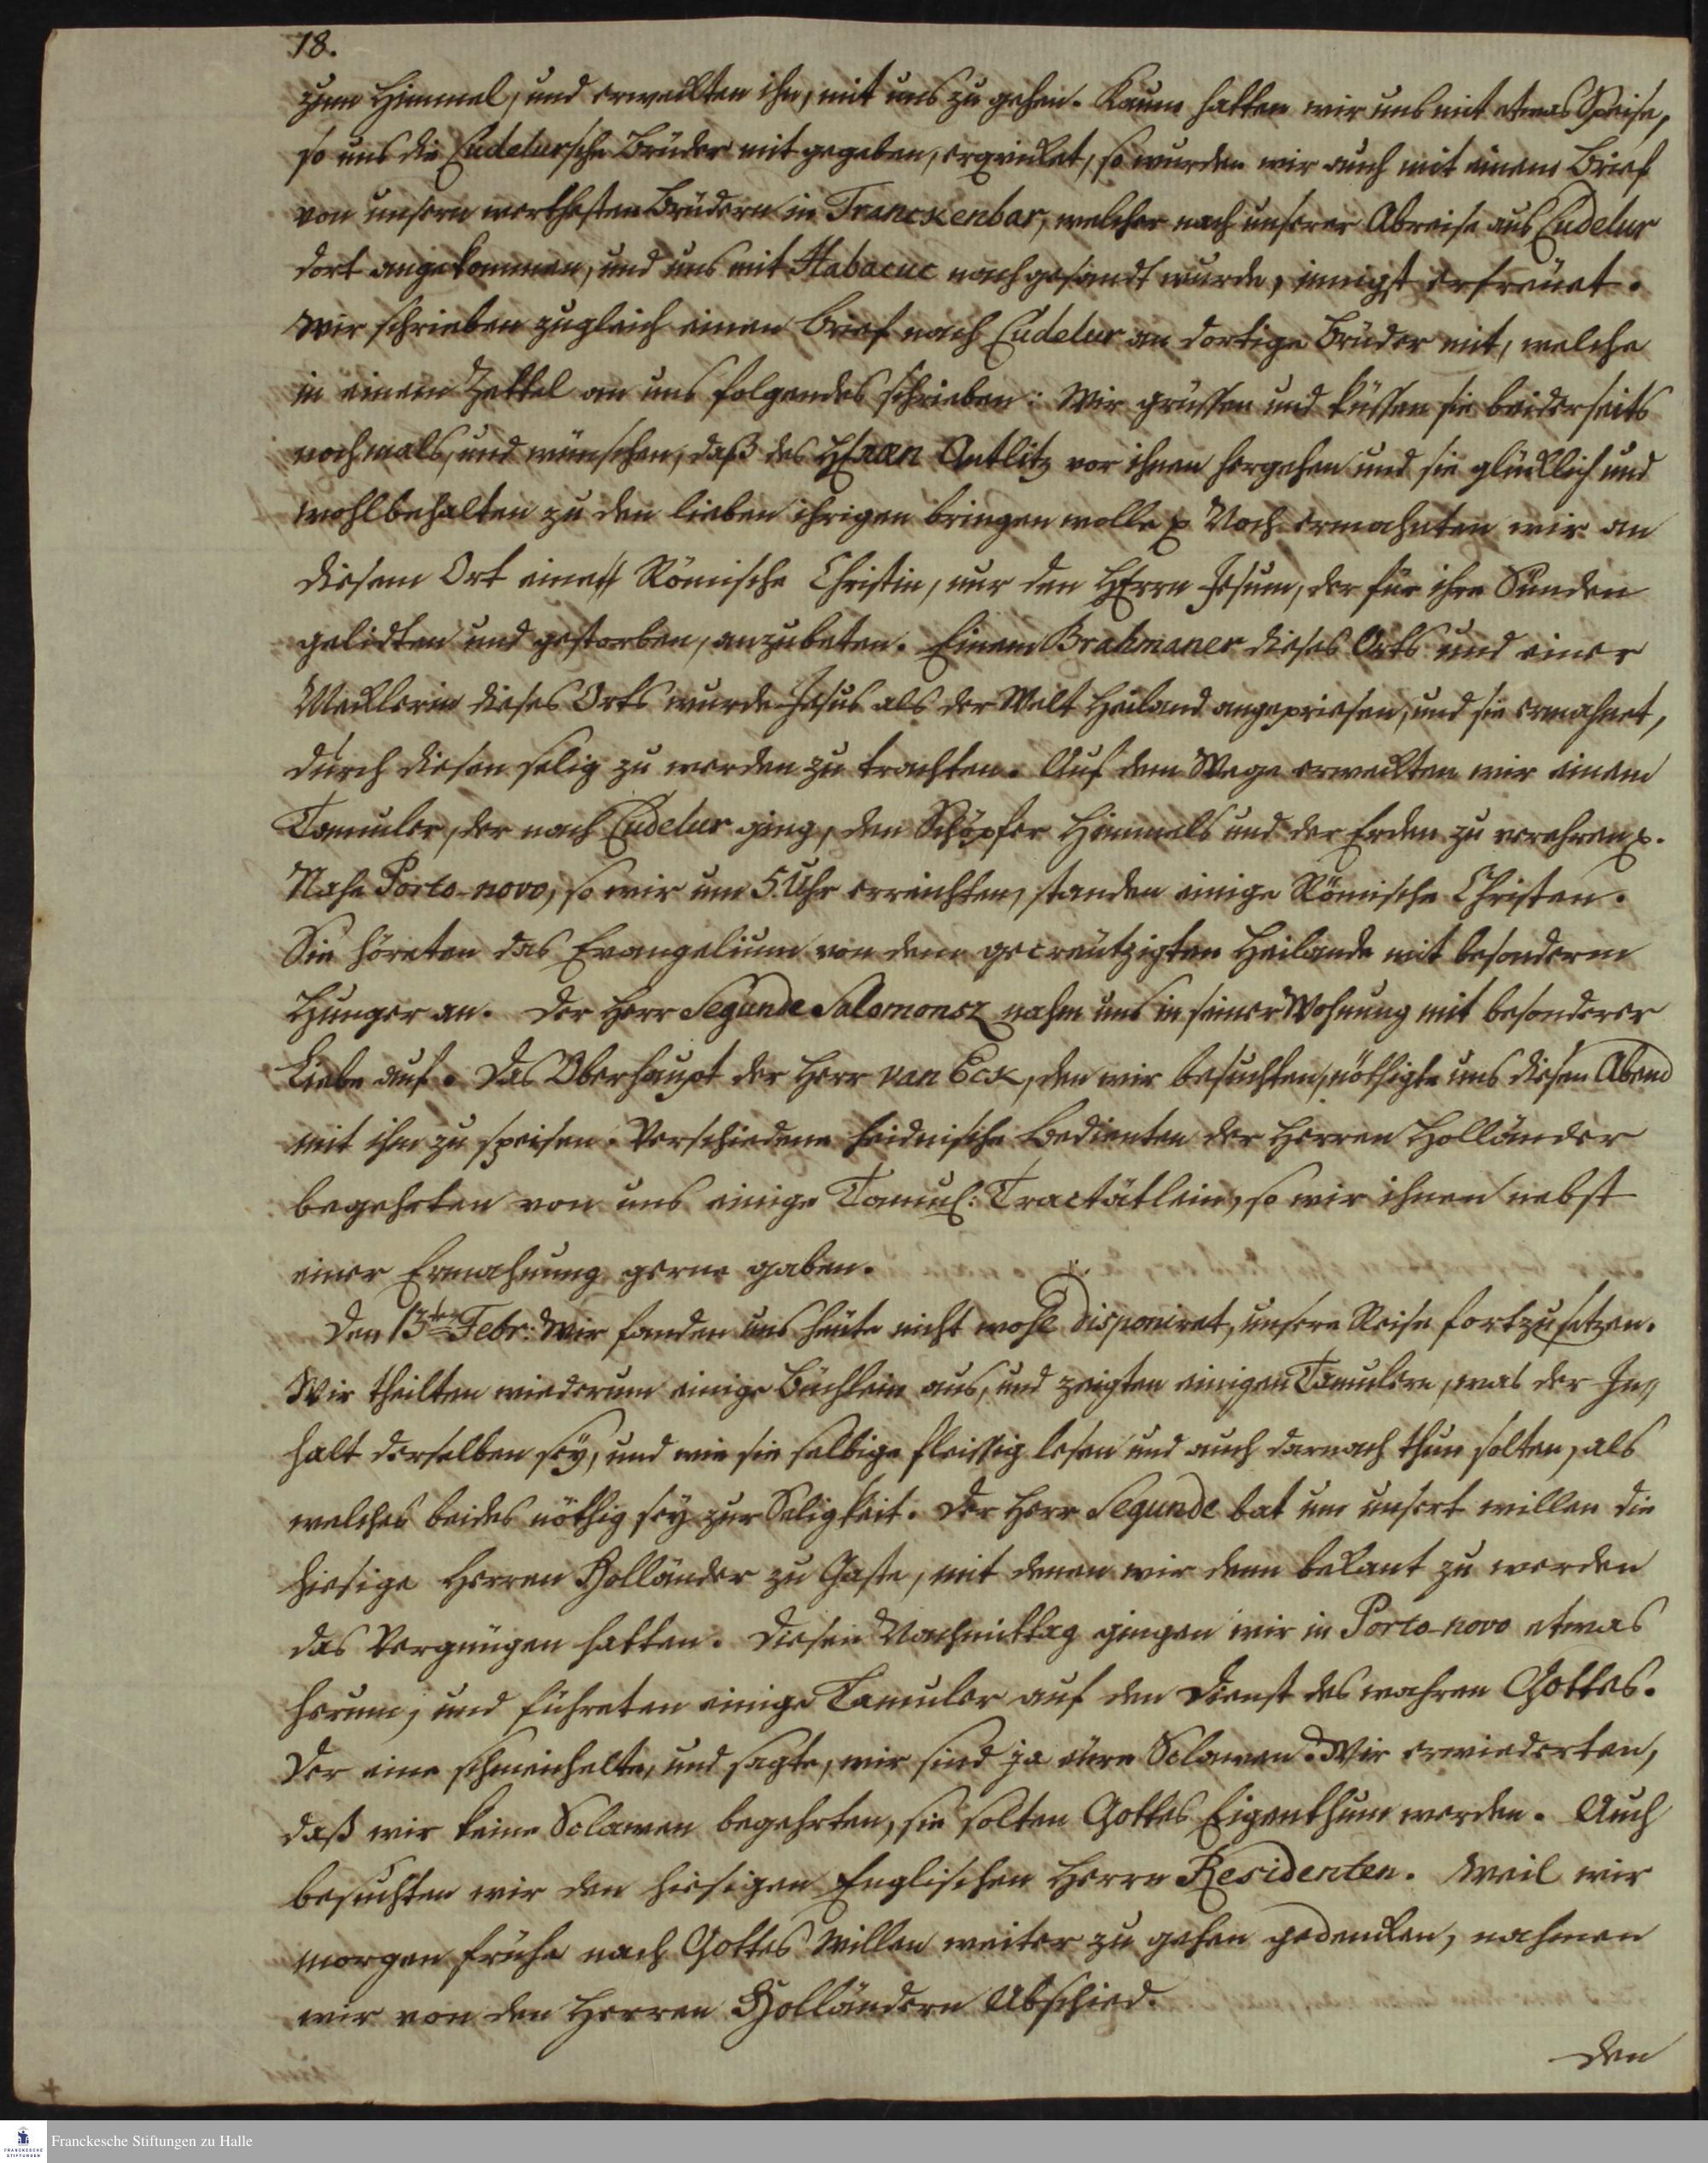 18.
zum Himmel, und erweckten ihn, mit uns zu gehen. Kaum hatten wir uns mit etwas Speise,
so uns die Cudelursche Brüder mit gegeben, erquicket, so wurden wir auch mit einem Brief
von unsern werthesten Brüdern in Tranckenbar, welcher nach unserer Abreise aus Cudelur
dort angekommen, und uns mit Habacuc nachgesandt wurde, innigst erfreuet.
Wir schrieben zugleich einen Brief nach Cudelur an dortige Brüder mit, welche
in einem Zettel an uns folgendes schrieben: Wir grüssen und küssen sie beiderseits
nochmals, und wünschen, daß des HErren Antlitz vor ihnen hergehen und sie glücklich und
wohlbehalten zu den lieben ihrigen bringen wolle p Noch ermahnten wir an
diesem Ort eine Römische Christin, nur den HErrn Jesum, der für ihre Sünden
gelidten und gestorben, anzubeten. Einem Brahmaner dieses Orts und einer
Mäcklerin dieses Orts wurde Jesus als der Welt Heiland angepriesen, und sie ermahnet,
durch diesen selig zu werden zu trachten. Auf dem Wege erweckten wir einem
Tamuler, der nach Cudelur ging, den Schöpfer Himmels und der Erden zu verehren p.
Nahe Porto-novo, so wir um 5. Uhr erreichten, standen einige Römische Christen.
Sie höreten das Evangelium von dem gecreutzigten Heilande mit besonderm
Hunger an. Der Herr Segunde Salomonsz nahm uns in seiner Wohnung mit besonderer
Liebe auf. Das Oberhaupt der Herr van Eck, den wir besuchten, nöthigte uns diesen Abend
mit ihm zu speisen. Verschiedene heidnische Bedienten der Herren Holländer
begehrten von uns einige Tamul: Tractätlein, so wir ihnen nebst
einer Ermahnung gerne gaben.
Den 13ten Febr: Wir fanden uns heute nicht wohl disponiret, unsere Reise fortzusetzen.
Wir theilten wiederum einige Büchlein aus, und zeigten einigen Tamulern, was der In-
halt derselben sey, und wie sie selbige fleissig lesen und auch darnach thun solten, als
welches beides nöthig sey zur Seligkeit. Der Herr Segunde bat um unsert willen die
hiesige Herren Holländer zu Gaste, mit denen wir denn bekant zu werden
das Vergnügen hatten. Diesen Nachmittag gingen wir in Porto-novo etwas
herum, und führeten einige Tamuler auf den Dienst des wahren Gottes.
Der eine schmeichelte, und sagte, wir sind ja eure Sclaven. Wir erwiederten,
daß wir keine Sclaven begehrten, sie solten Gottes Eigenthum werden. Auch
besuchten wir den hiesigen Englischen Herrn Residenten. Weil wir
morgen frühe nach Gottes Willen weiter zu gehen gedencken, nahmen
wir von den Herren Holländern Abschied.
Den
FRANCKESCHE STIFTUNGEN
Franckesche Stiftungen zu Halle